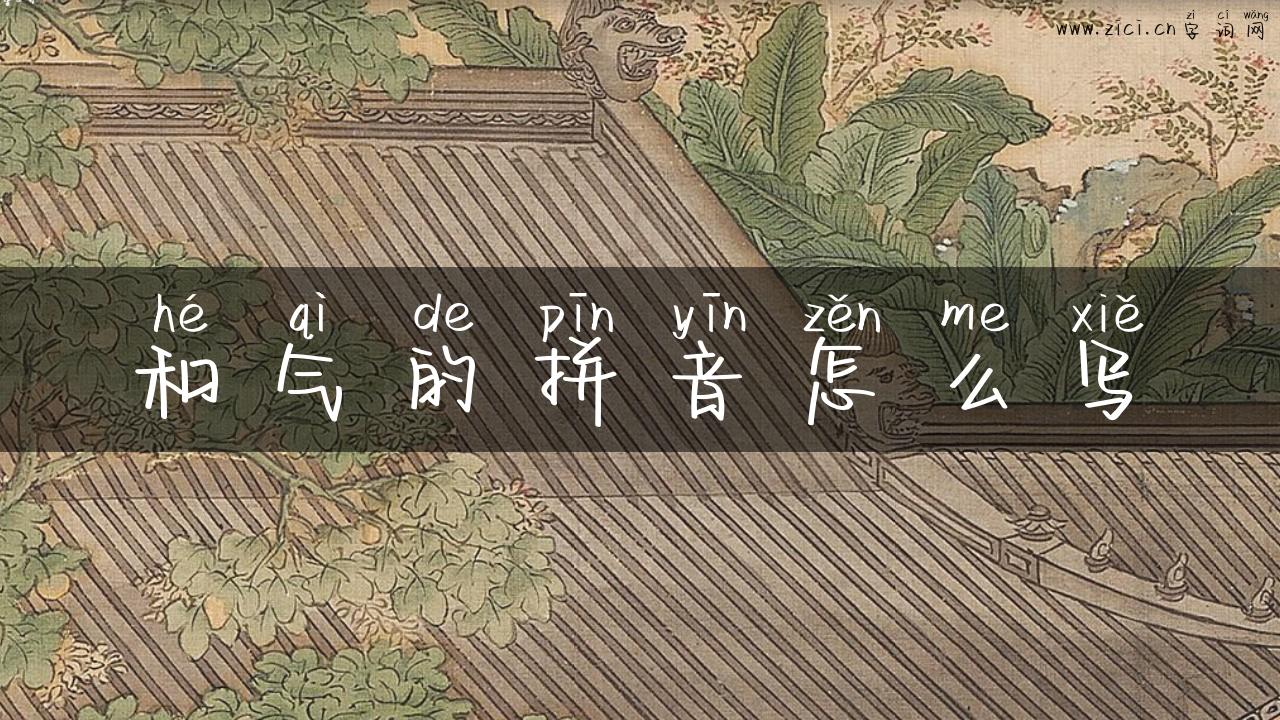 zì cí wǎng
www.zici.cn 字词网
hé qì de pīn yīn zěn me xiě
和气的拼音怎么写